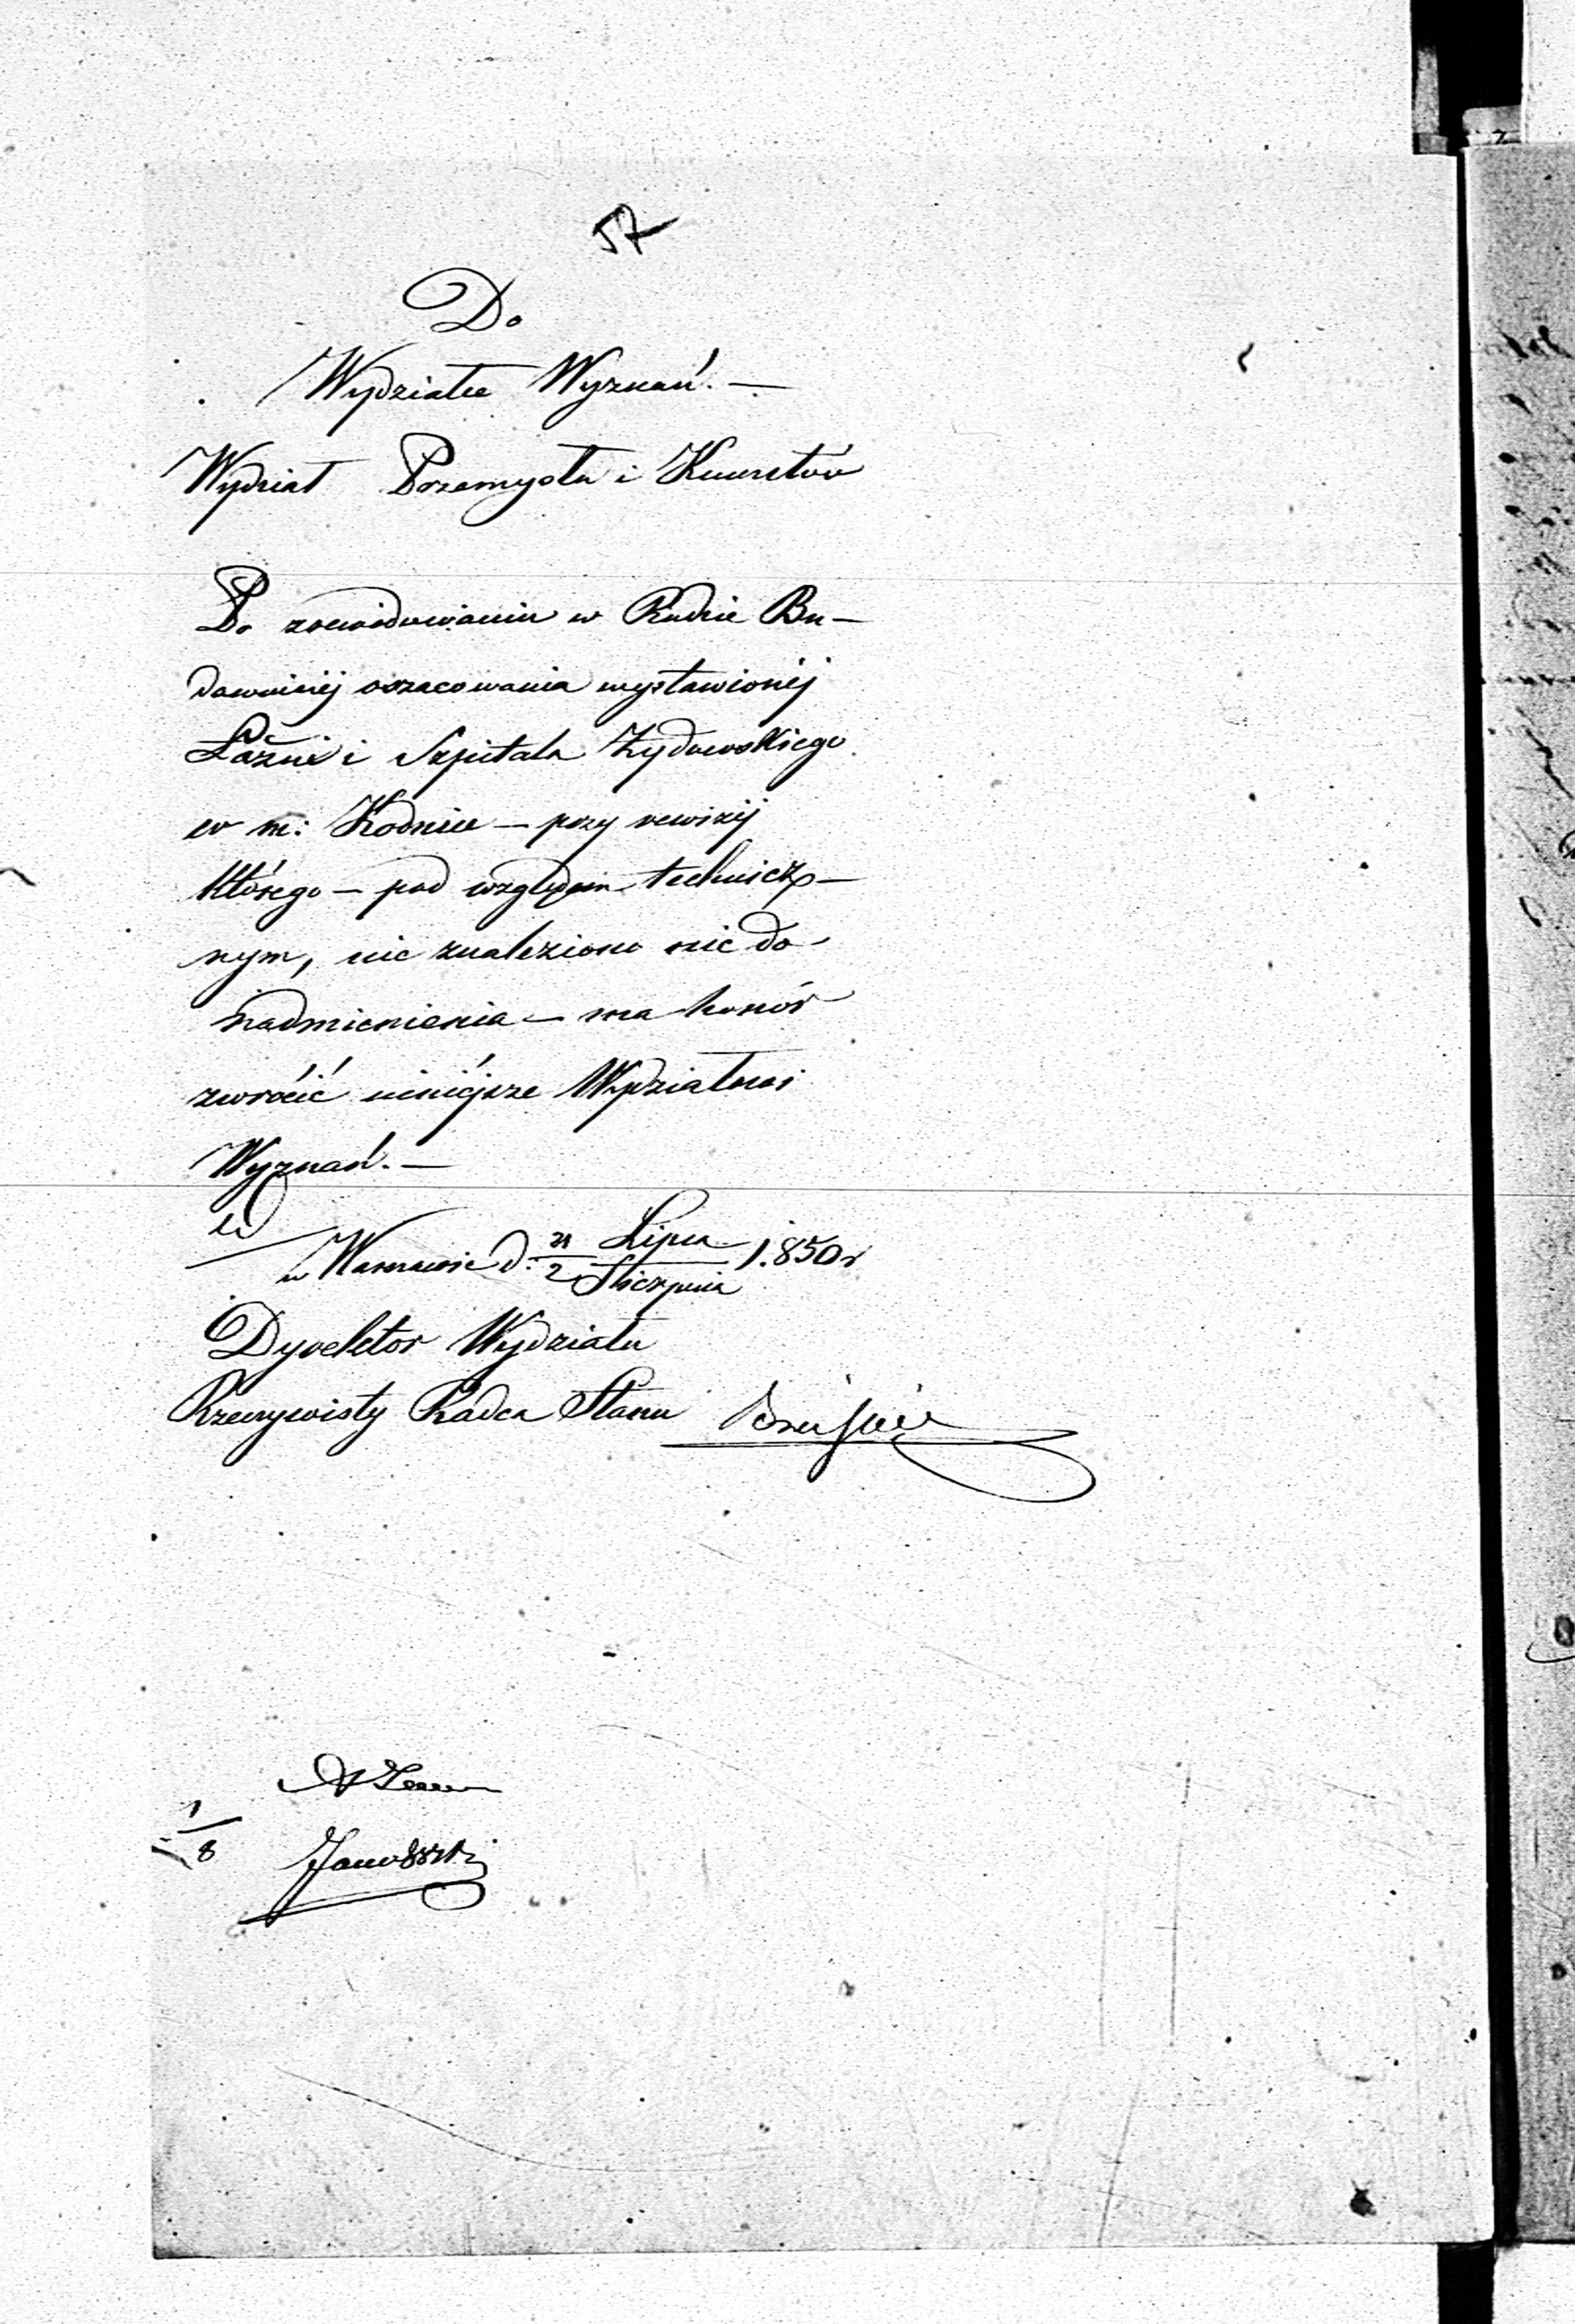 57
Do
Wydziału Wyznań. —
Wydział Przemysłu i Kunsztów
Po zrewidowaniu w Radzie Bu—
downiczéj oszacowania wystawionéj
Łaźni i Szpitala Żydowskiego
w m: Kodniu — przy rewizij
którego — pod względem technicz—
nym, nic znaleziono nic do
nadmienienia — ma honór
zwrócić niniéjsze Wydziałowi
Wyznań. —
w Warszawie d. 21/2 Lipca/Sierpnia 1.850 r
Dyrektor Wydziału
Rzeczywisty Radca Stanu
1/8
Janowski